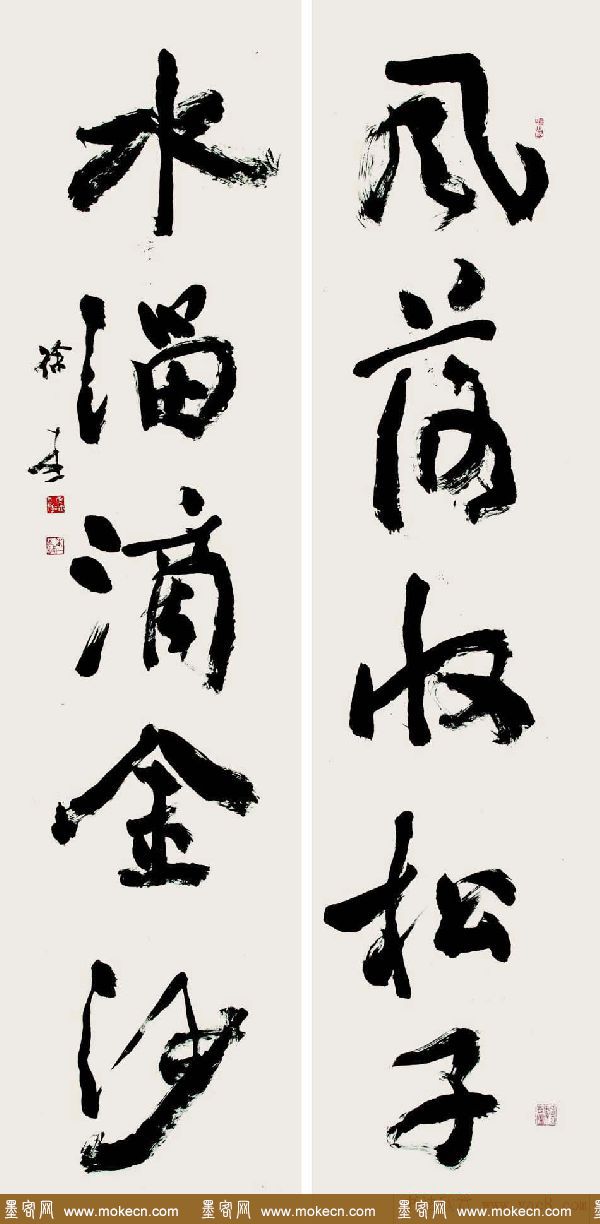 风落收松子
水溜滴金沙
墨客网 www.mokecn.com 墨客网 www.mokecn.com 墨客网 www.mokecn.com 墨客网